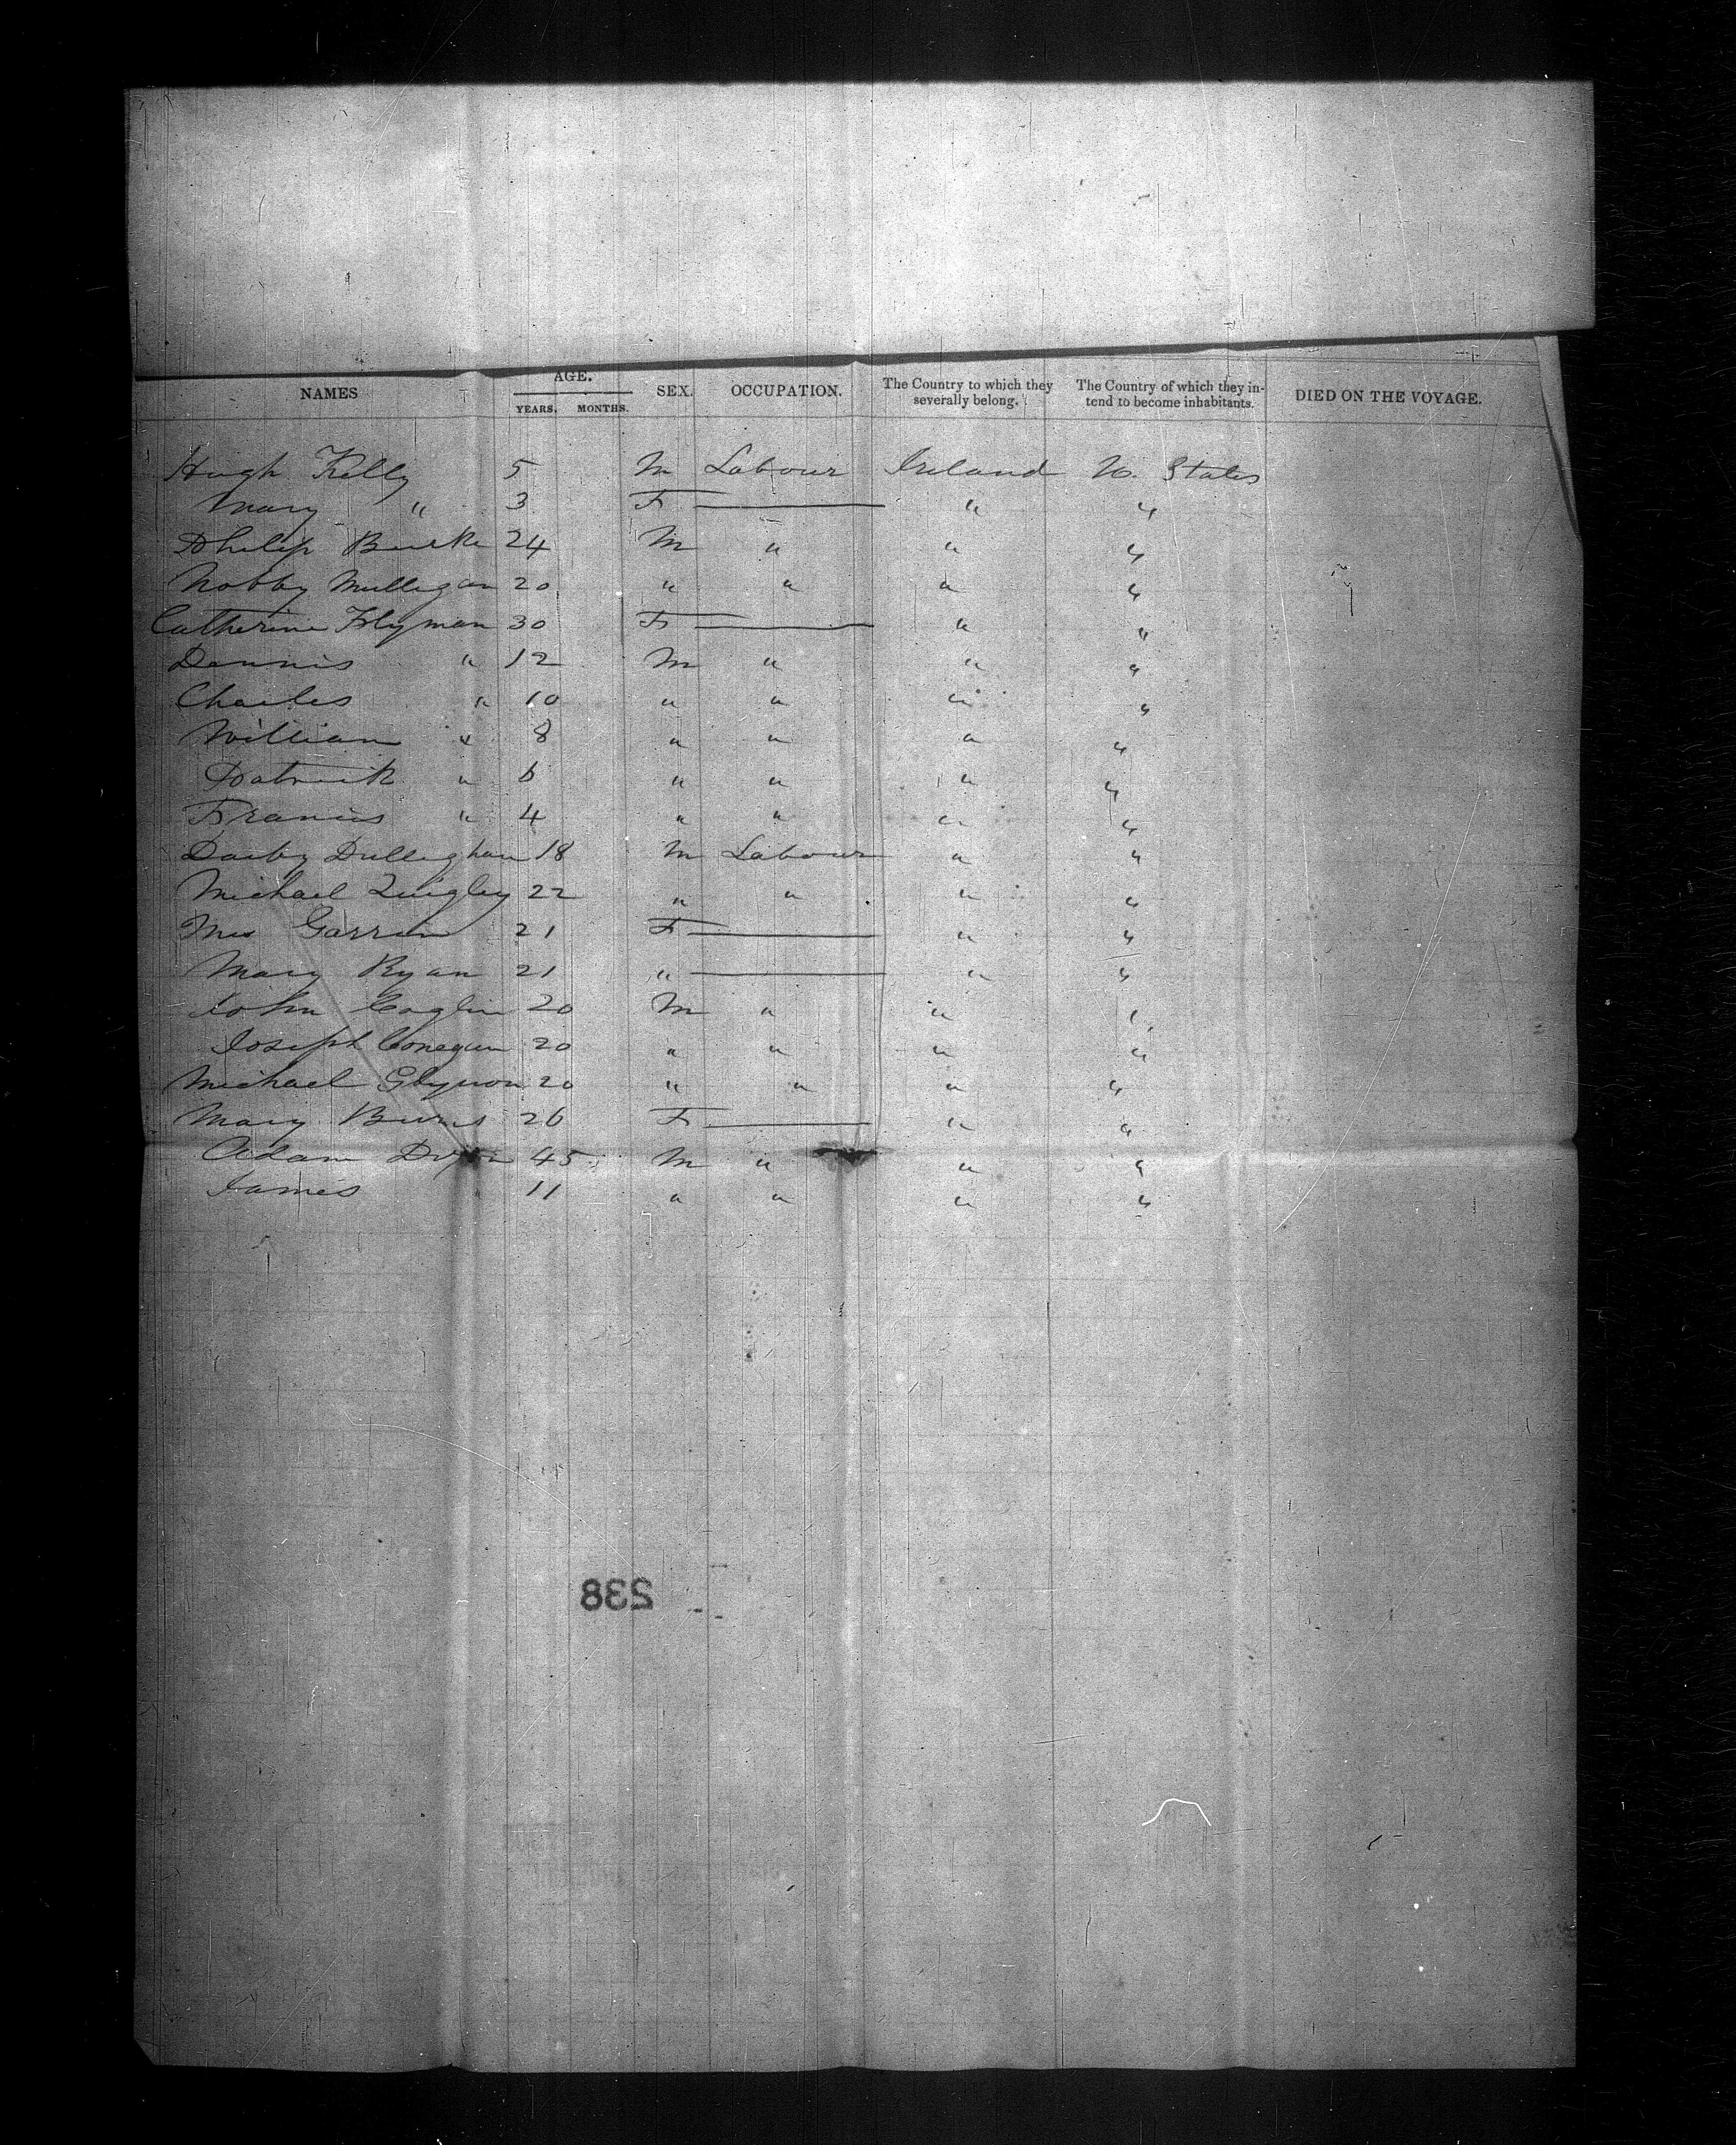 NAMES AGE. YEARS. MONTHS. SEX. OCCUPATION. The Country to which they severally belong. The Country of which they intend to become inhabitants. DIED ON THE VOYAGE.
Hugh Kelly 5 M Labour Ireland U. States
Mary " 3 F — " "
Philip Burke 24 M " " "
Nobby Mulligan 20 " " " "
Catherine Flyman 30 F — " "
Dennis " 12 M " " "
Charles " 10 " " " "
William " 8 " " " "
Patrick " 6 " " " "
Francis " 4 " " " "
Darby Dullighan 18 M Labour " "
Michael Quigley 22 " " " "
Mrs 21 F — " "
Mary Ryan 21 " — " "
John Coglin 20 M " " "
Joseph Conegan 20 " " " "
Michael Glynon 20 " " " "
Mary Burns 26 F — " "
Adam 45 M " " "
James 11 " " " "
238